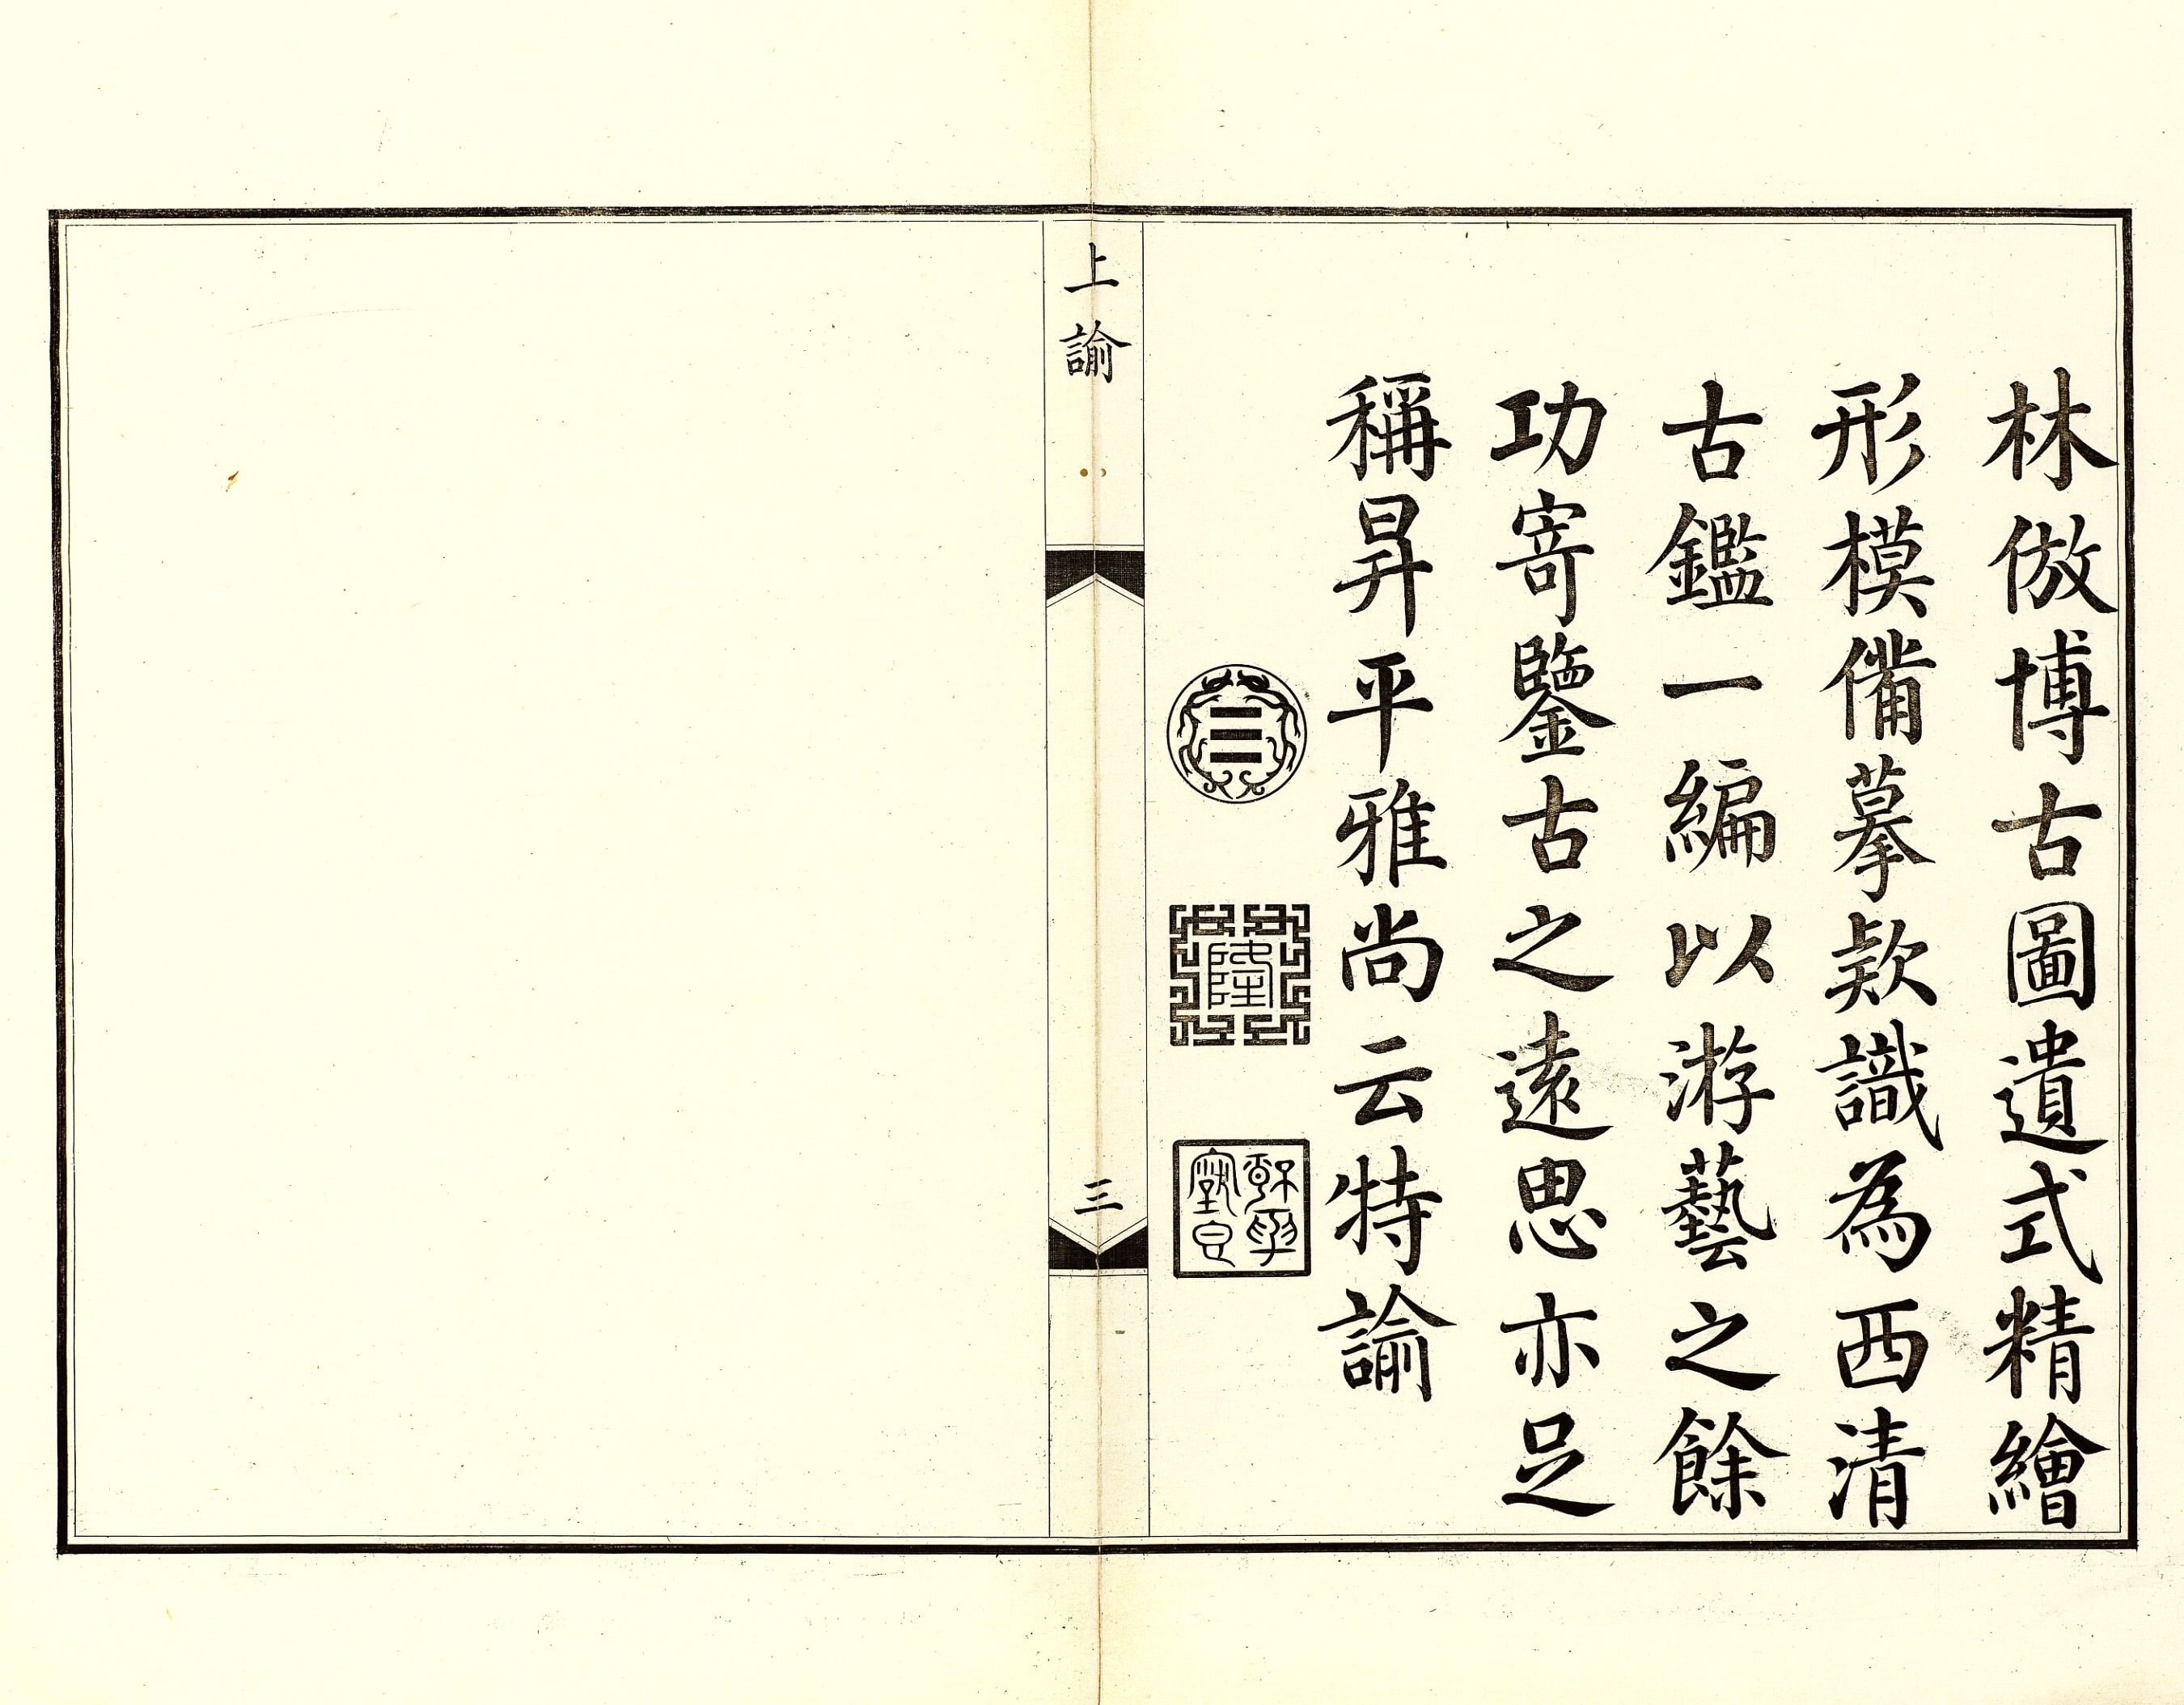 林倣博古圖遺式精繪
形模備摹欵識為西清
古鑑一編以游藝之餘
功寄鑒古之遠思亦足
稱昇平雅尚云特諭
隆
上諭
三